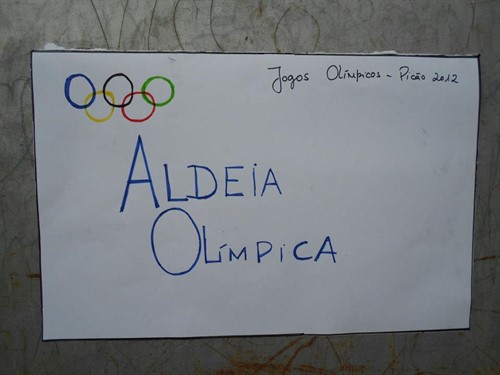 Jogos Olímpicos - Picão 2012
ALDEiA
OLÍMPiCA